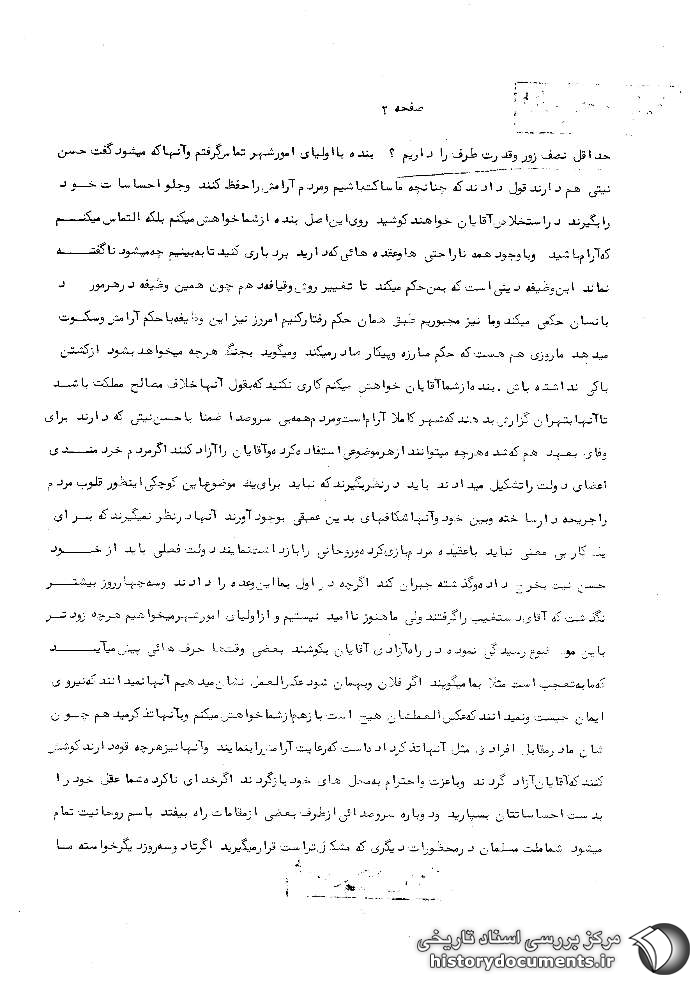 صفحه ۲
حداقل نصف زور وقدرت طرف را داریم ؟ بنده با اولیای امور شهر تماس گرفتم وآنها که میشود گفت حسن
نیتی هم دارند قول دادند که چنانچه ما ساکت باشیم ومردم آرامش را حفظ کنند وجلو احساسات خود
را بگیرند در استخلاص آقایان خواهند کوشید روی این اصل بنده از شما خواهش میکنم بلکه التماس میکنم
که آرام باشید وبا وجود همه ناراحتی ها وعقده هائی که دارید بردباری کنید تا به بینیم چه میشود ناگفته
نماند این وظیفه دینی است که بمن حکم میکند تا تغییر روش وقیافه دهم چون همین وظیفه در هر مورد
بانسان حکمی میکند وما نیز مجبوریم طبق همان حکم رفتار کنیم امروز نیز این وظیفه با حکم آرامش وسکوت
میدهد ما روزی هم هست که حکم مبارزه وپیکار صادر میکند ومیگوید بجنگ هرچه میخواهد بشود از کشتن
باکی نداشته باش . بنده از شما آقایان خواهش میکنم کاری نکنید که بقول آنها خلاف مصالح مملکت باشد
تا آنها بتهران گزارش بدهند که شهر کاملا آرام است ومردم همه بی سروصدا ضمنا با حسن نیتی که دارند برای
وفای بعهد هم که شده هرچه میتوانند از هر موضوعی استفاده کرده وآقایان را آزاد کنند اگر مردم خردمندی
اعضای دولت را تشکیل میدادند باید در نظر بگیرند که نباید برای یک موضوع باین کوچکی اینطور قلوب مردم
را جریحه دار ساخته وبین خود وآنها شکافهای بدین عمیقی بوجود آورند آنها در نظر نمیگیرند که برای
یک کار بی معنی نباید با عقیده مردم بازی کرده وروحانی را بازداشت نمایند دولت فعلی باید از خود
حسن نیت بخرج داده وگذشته جبران کند اگرچه در اول بما این وعده را دادند وسه چهار روز بیشتر
نگذشت که آقای دستغیب را گرفتند ولی ما هنوز ناامید نیستیم و از اولیای امور شهر میخواهیم هرچه زودتر
باین موضوع رسیدگی نموده در راه آزادی آقایان بکوشند بعضی وقتها حرف هائی پیش میآید
که مایه تعجب است مثلا بما میگویند اگر فلان وبهمان شود عکس العمل نشان میدهیم آنها نمیدانند که نیروی
ایمان چیست ونمیدانند که عکس العملشان هیچ است بازهم از شما خواهش میکنم وبآنها تذکر میدهم چون
شان ما در مقابل افرادی مثل آنها تذکر دادن است که رعایت آرامش را بنمایند وآنها نیز هرچه قوه دارند کوشش
کنند که آقایان آزاد گردند وبا عزت واحترام به محل های خود بازگردند اگر خدای ناکرده شما عقل خود را
بدست احساساتتان بسپارید ودوباره سروصدائی از طرف بعضی از مقامات راه بیفتد باسم روحانیت تمام
میشود شما ملت مسلمان در محظورات دیگری که مشکل تر است قرار میگیرید اگر تا دو سه روز دیگر خواسته ما
مرکز بررسی اسناد تاریخی
historydocuments.ir